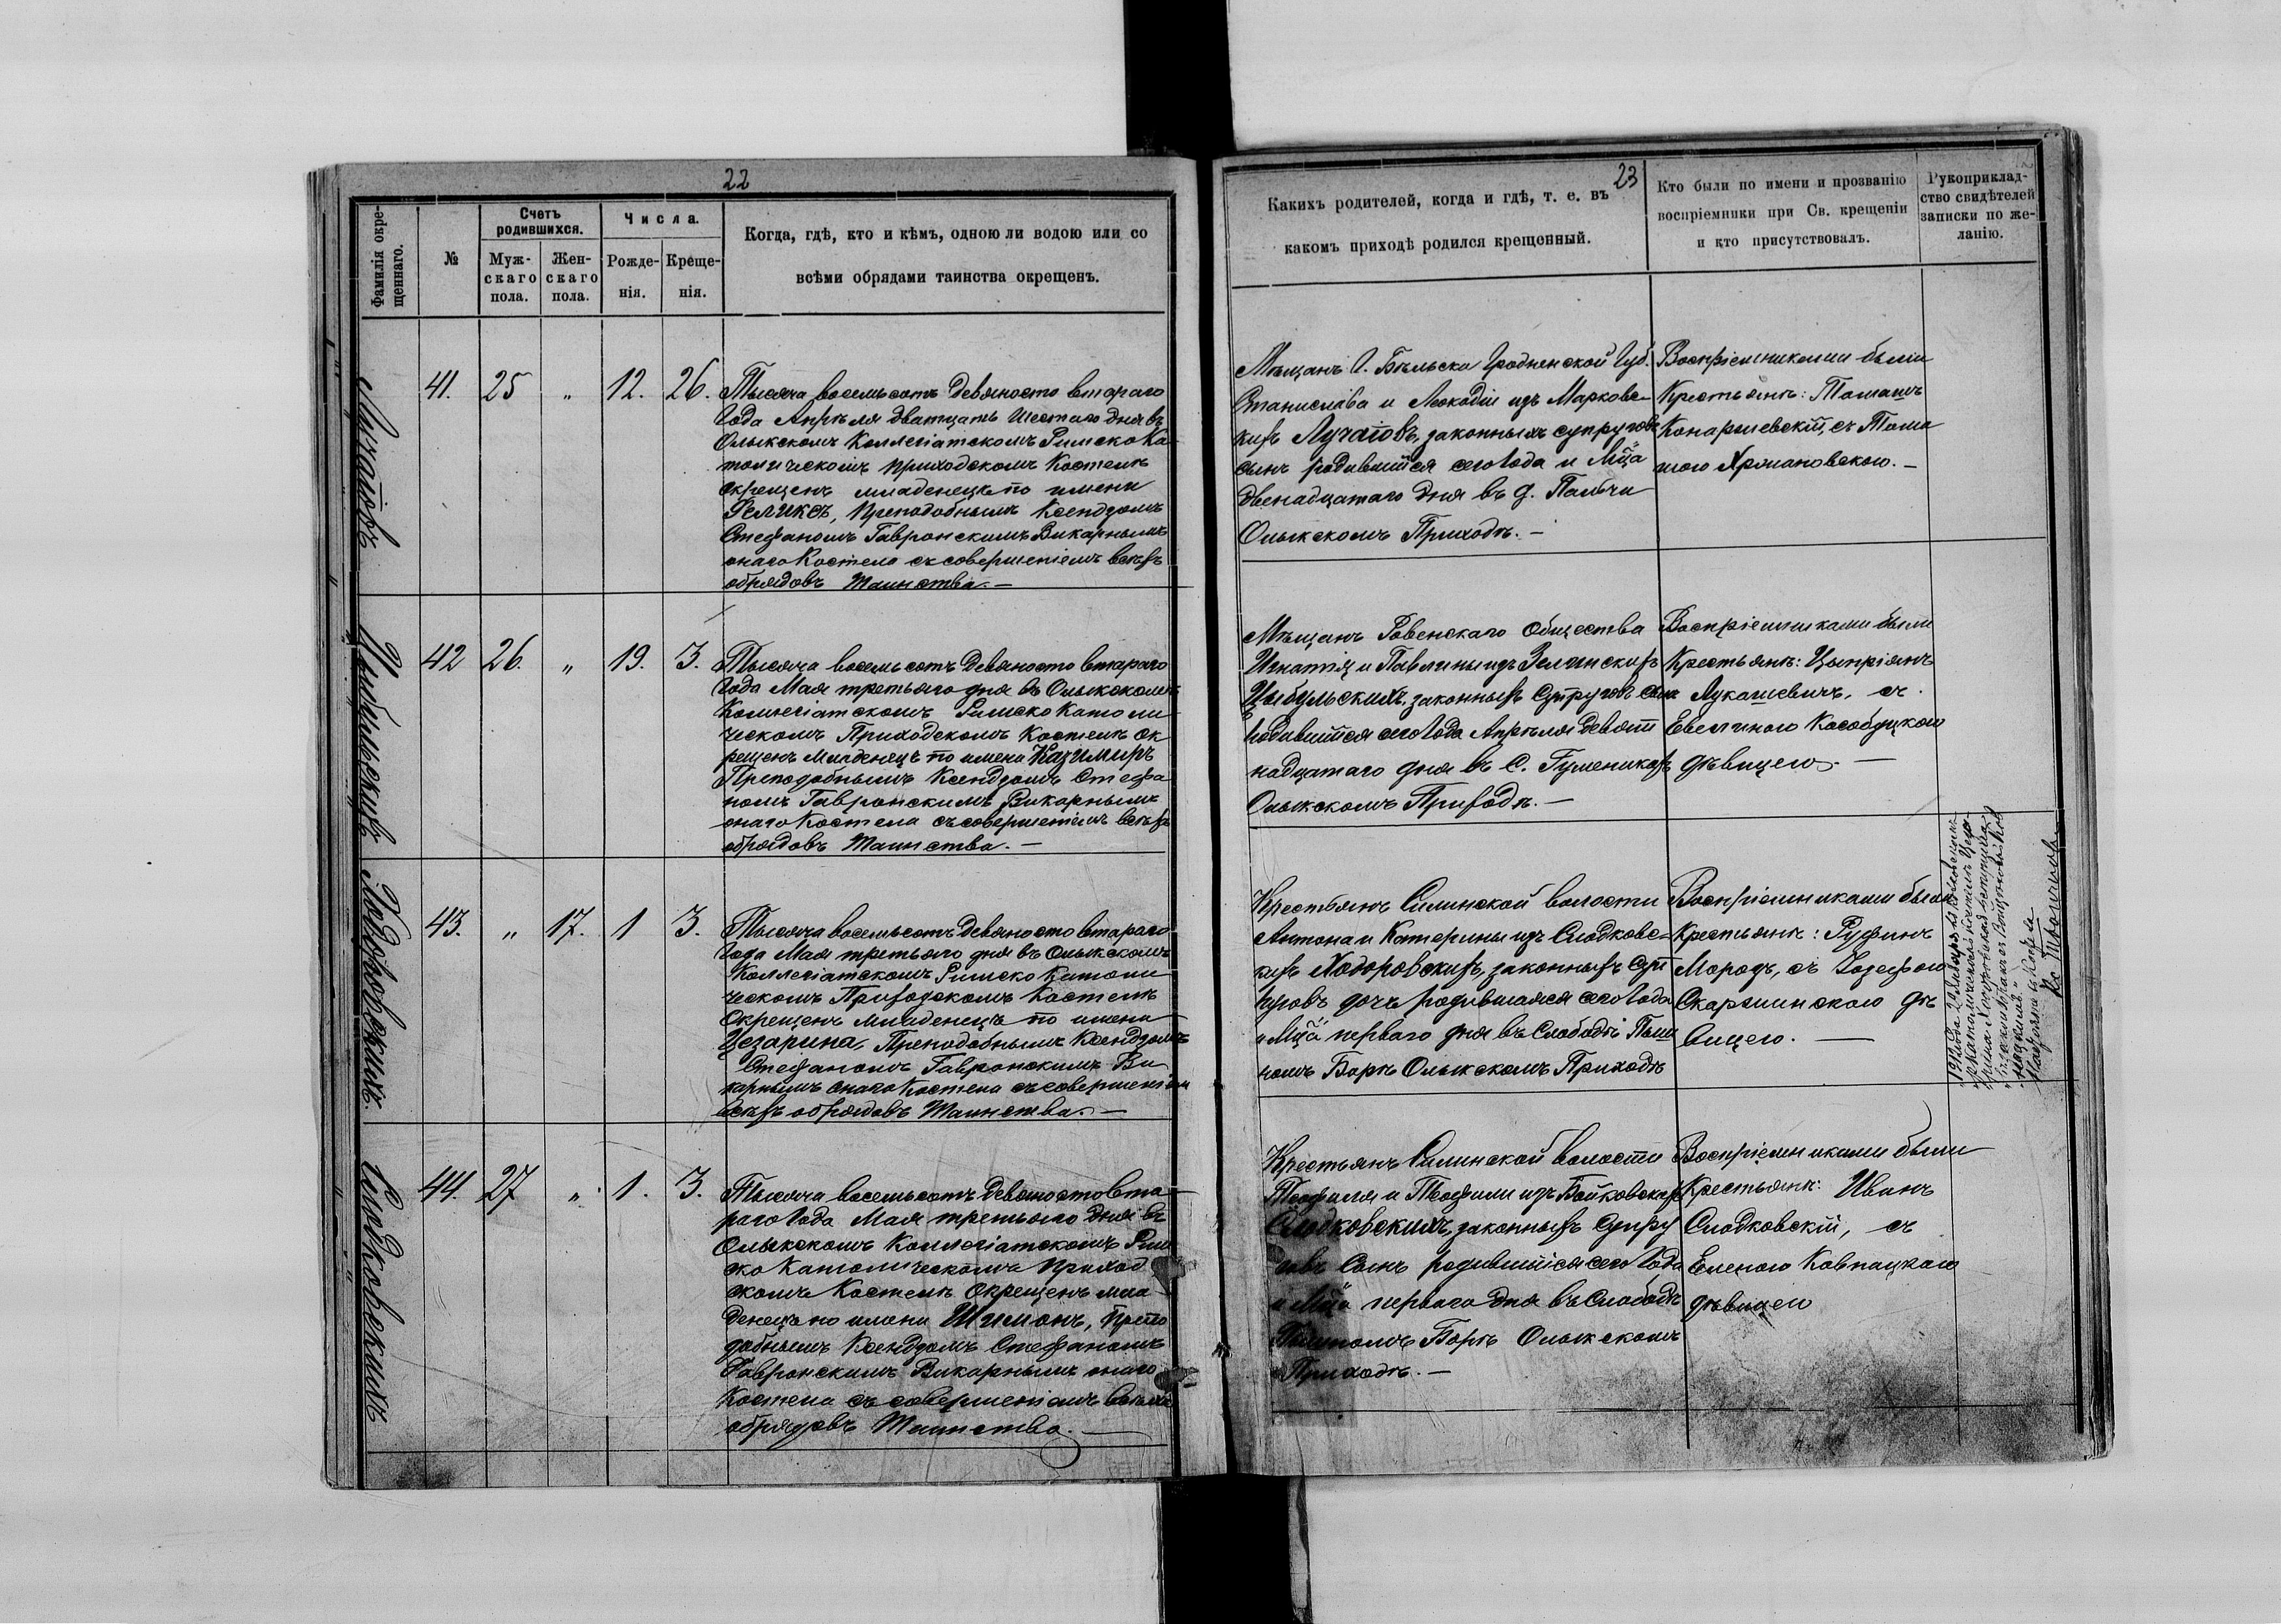 22
Фамилія окре-
щеннаго.
№
Счетъ
родившихся.
Муж-
скаго
пола.
Жен-
скаго
пола.
Числа.
Рожде-
нія.
Креще-
нія.
Когда, гдѣ, кто и кѣмъ, одною ли водою или со
всѣми обрядами таинства окрещенъ.
41.
25
"
12.
26.
Тысяча восемьсотъ девяносто втораго
Года Апрѣля дватцать шестаго дня въ
Олыкскомъ Коллегіатскомъ Римско Ка-
толическомъ приходскомъ Костелѣ
окрещенъ младенецъ по имени
Феликсъ, Преподобнымъ Ксендзомъ
Стефаномъ Гавронскимъ Викарнымъ
онаго Костела съ совершеніемъ всѣхъ
обрядовъ Таинства. —
Цыбульскихъ
42
26.
"
19.
3.
Тысяча восемьсотъ Девяносто втараго
Года Мая третьяго дня въ Олыкскомъ
Коллегіатскомъ Римско Католи
ческомъ Приходскомъ Костелѣ ок
рещенъ Младенецъ по имени Казимиръ
Преподобнымъ Ксендзомъ Стефа
номъ Гавронскимъ Викарнымъ
онаго Костела съ совершеніемъ всѣхъ
обрядовъ Таинства. —
Ходоровскихъ.
43.
"
17.
1
3.
Тысяча восемьсотъ Девяносто втараго
Года Мая третьяго дня въ Олыкскомъ
Коллегіатскомъ Римско Католи
ческомъ Приходскомъ Костелѣ
Окрещенъ младенецъ по имени
Цезарина, Преподобнымъ Ксендзомъ
Стефаномъ Гавронскимъ Ви
карнымъ онаго Костела съ совершеніем
всѣхъ обрядовъ Таинства. —
Слодковскихъ
44.
27
"
1.
3.
Тысяча восемьсотъ Девяносто вта
раго Года Мая третьяго дня въ
Олыкскомъ Коллегіатскомъ Рим
ско Католическомъ приход
скомъ Костелѣ Окрещенъ мла
денецъ по имени Шимонъ, Препо
добнымъ Ксендзомъ Стефаномъ
Гавронскимъ Викарнымъ онаго
Костела съ совершеніемъ всѣхъ
обрядовъ Таинства. —
23
Какихъ родителей, когда и гдѣ, т. е. въ
какомъ приходѣ родился крещенный.
Кто были по имени и прозванію
воспріемники при Св. крещеніи
и кто присутствовалъ.
Рукоприклад-
ство свидѣтелей
записки по же-
ланію.
Мѣщанъ Г. Бѣльска Гродненской Губ.
Станислава и Леокадіи изъ Марковс-
кихъ законныхъ супруговъ
сынъ родившійся сего Года и Мца
двенадцатаго дня въ д.
Олыкскомъ Приходѣ. —
Воспріемниками были
Крестьяне: Томашъ
съ Тома
—
Мѣщанъ Ровенскаго Общества
Игнатія и Павлины изъ Зелинскихъ
Цыбульскихъ, законныхъ Супруговъ сын
родившійся сего Года Апрѣля девят
надцатаго дня въ С.
Олыкскомъ Приходѣ. —
Воспріемниками были
Крестьяне: Цыпріянъ
Лукашевичъ, съ
Евелиною
дѣвицею. —
Крестьянъ Силинской волости
Антона и Катерины изъ Слодковс-
кихъ Ходоровскихъ, законныхъ Суп
руговъ дочь родившаяся сего Года
и Мца перваго дня въ Слободѣ
номъ Боркѣ Олыкскомъ Приходѣ
Воспріемниками были
Крестьяне: Руфинъ
Морозъ, съ Іозефою
дѣ
вицею. —
Крестьянъ Силинской волости
Теофиля и Теофили изъ Бойковскихъ
Слодковскихъ, законныхъ Супру
говъ Сынъ родившійся сего Года
и Мца перваго дня въ Слободѣ
Боркѣ Олыкскомъ
Приходѣ. —
Воспріемниками были
Крестьяне: Иванъ
Слодковскій, съ
Еленою
дѣвицею